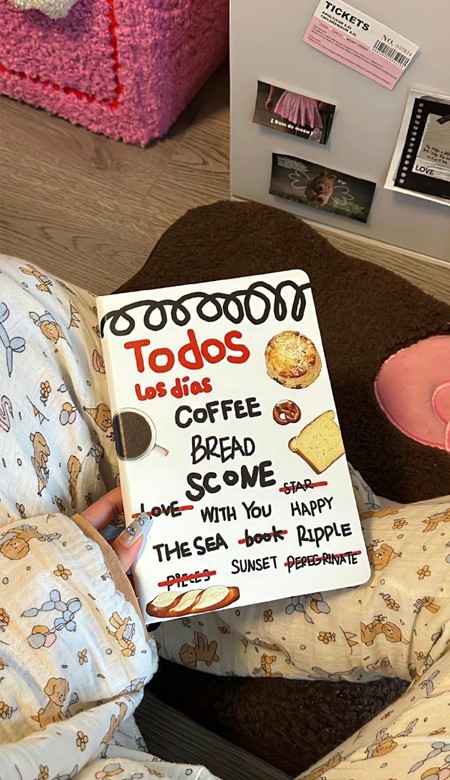 TICKETS
NO.
LOVE
Todos
Los días
COFFEE
BREAD
SCONE
LOVE WITH YOU STAR HAPPY
THE SEA book RIPPLE
PIECES SUNSET PEREGRINATE